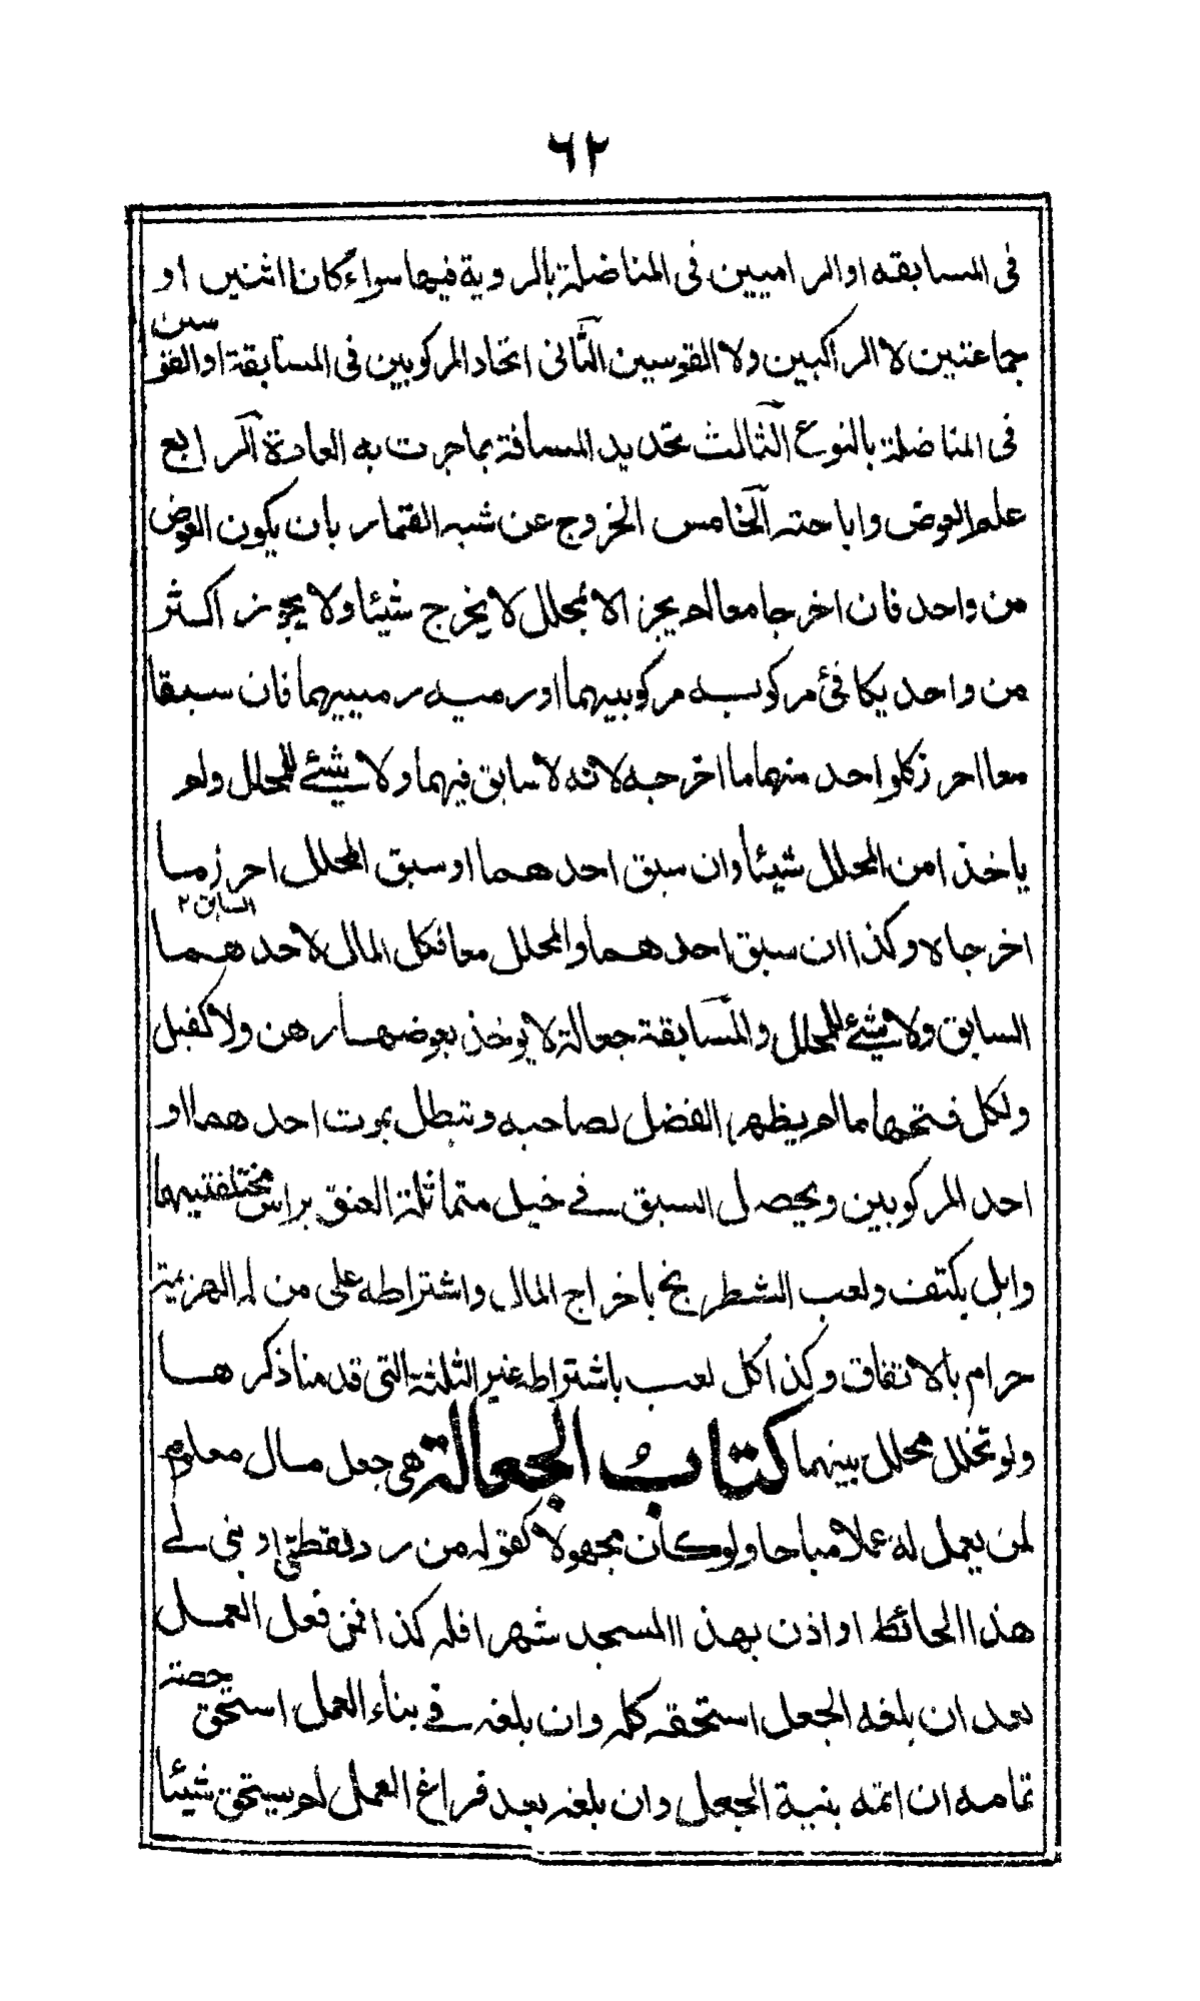 ٦٢
فى المسابقه او الراميين فى المناضلة بالروية فيها سواء كان اثنين او
جماعتين لا الراكبين ولا القوسين الثانى اتحاد المركوبين فى المسابقة او القوسين
فى المناضلة بالنوع الثالث تحديد المسافة بما جرت به العادة الرابع
علم العوض واباحته الخامس الخروج عن شبه القمار بان يكون العوض
من واحد فان اخرجا معا لم يجز الا بمحلل لا يخرج شيئا ولا يجوز اكثر
من واحد يكافئ مركوبه مركوبيهما او رميه رمييهما فان سبقا
معا احرز كل واحد منهما ما اخرجه لانه لا سابق فيهما ولا شيئ للمحلل ولم
ياخذا من المحلل شيئا وان سبق احدهما او سبق المحلل احرز ما
اخرجاه وكذا ان سبق احدهما والمحلل معا فكل المال لاحدهما السابق ٢
السابق ولا شيئ للمحلل والمسابقة جعالة لا يوخذ بعوضها رهن ولا كفيل
ولكل فتحها ما لم يظهر الفضل لصاحبه وتبطل بموت احدهما او
احد المركوبين ويحصل السبق فى خيل متماثلة العنق براس مختلفتيهما
وابل بكتف ولعب الشطرنج باخراج المال واشتراطه على من له الهزيمة
حرام بالاتفاق وكذا كل لعب باشتراط غير الثلثة التى قدمنا ذكرها
ولو تخلل محلل بينهما كتاب الجعالة هى جعل مال معلوم
لمن يعمل له عملا مباحا ولو كان مجهولا كقوله من رد لقطتى او بنى لى
هذا الحائط او اذن بهذا المسجد شهرا فله كذا فمن فعل العمل
بعد ان بلغه الجعل استحقه كله وان بلغه فى بناء العمل استحق حصة
تمامه ان اتمه بنية الجعل وان بلغه بعد فراغ العمل لم يستحق شيئا